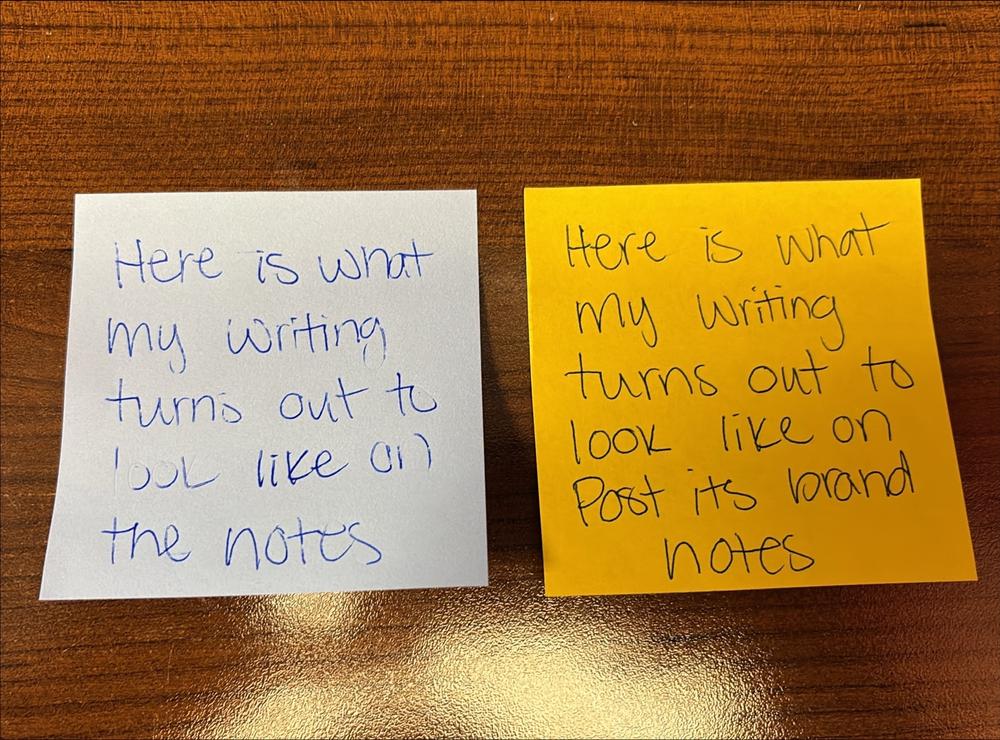 Here is what
my writing
turns out to
look like on
the notes
Here is what
my writing
turns out to
look like on
Post its brand
notes